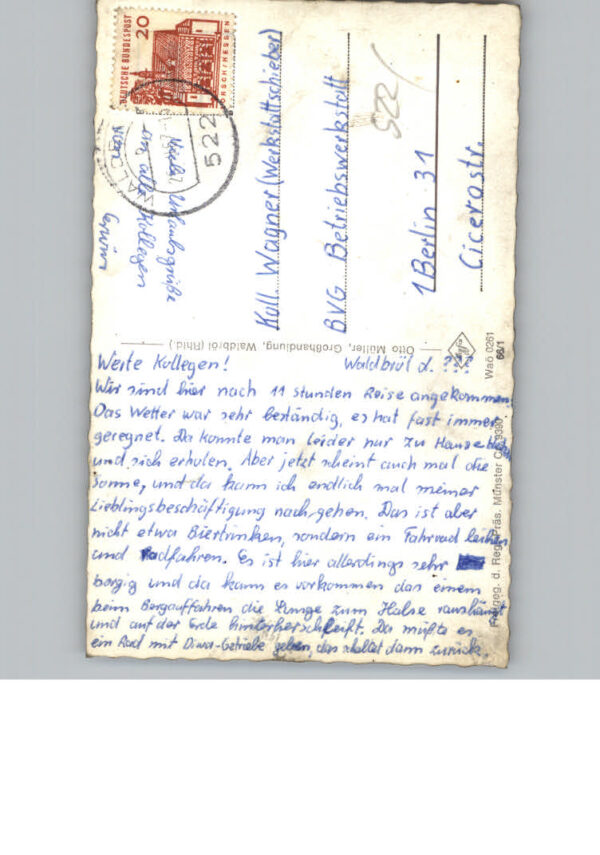 Werte Kollegen! Waldbröl d. ???
Wir sind hier nach 11 stunden Reise angekommen.
Das Wetter war sehr beständig, es hat fast immer
geregnet. Da konnte man leider nur zu Hause
und sich erholen. Aber jetzt scheint auch mal die
Sonne, und da kann ich endlich mal meiner
Lieblingsbeschäftigung nachgehen. Das ist aber
nicht etwa Biertrinken, sondern ein Fahrrad leihen
und Radfahren. Es ist hier allerdings sehr
bergig und da kann es vorkommen das einem
beim Bergauffahren die Zunge zum Halse raushängt
und auf der Erde hinterherschleift. Da müßte es
ein Rad mit Diwa-Getriebe geben, das schaltet dann zurück.
Viele Urlaubsgrüße
an alle Kollegen
von
Erwin
Koll. Wagner (Werkstattschieber)
BVG Betriebswerkstatt
1 Berlin 31
Cicerostr.
522
DEUTSCHE BUNDESPOST
20
LORSCH/HESSEN
522
WALDBRÖL
Otto Müller, Großhandlung, Waldbröl (Rhld.)
Waö 0261
66/1
Freigeg. d. Reg. Präs. Münster